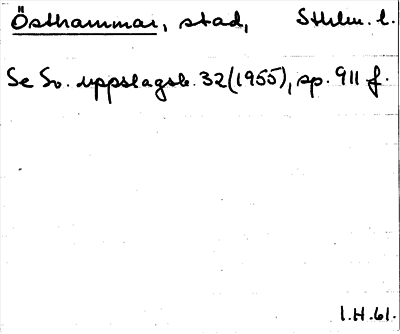 Östhammar, stad, Sthlm. l.
Se Sv. uppslagsb. 32(1955), sp. 911 f.
I.H.61.